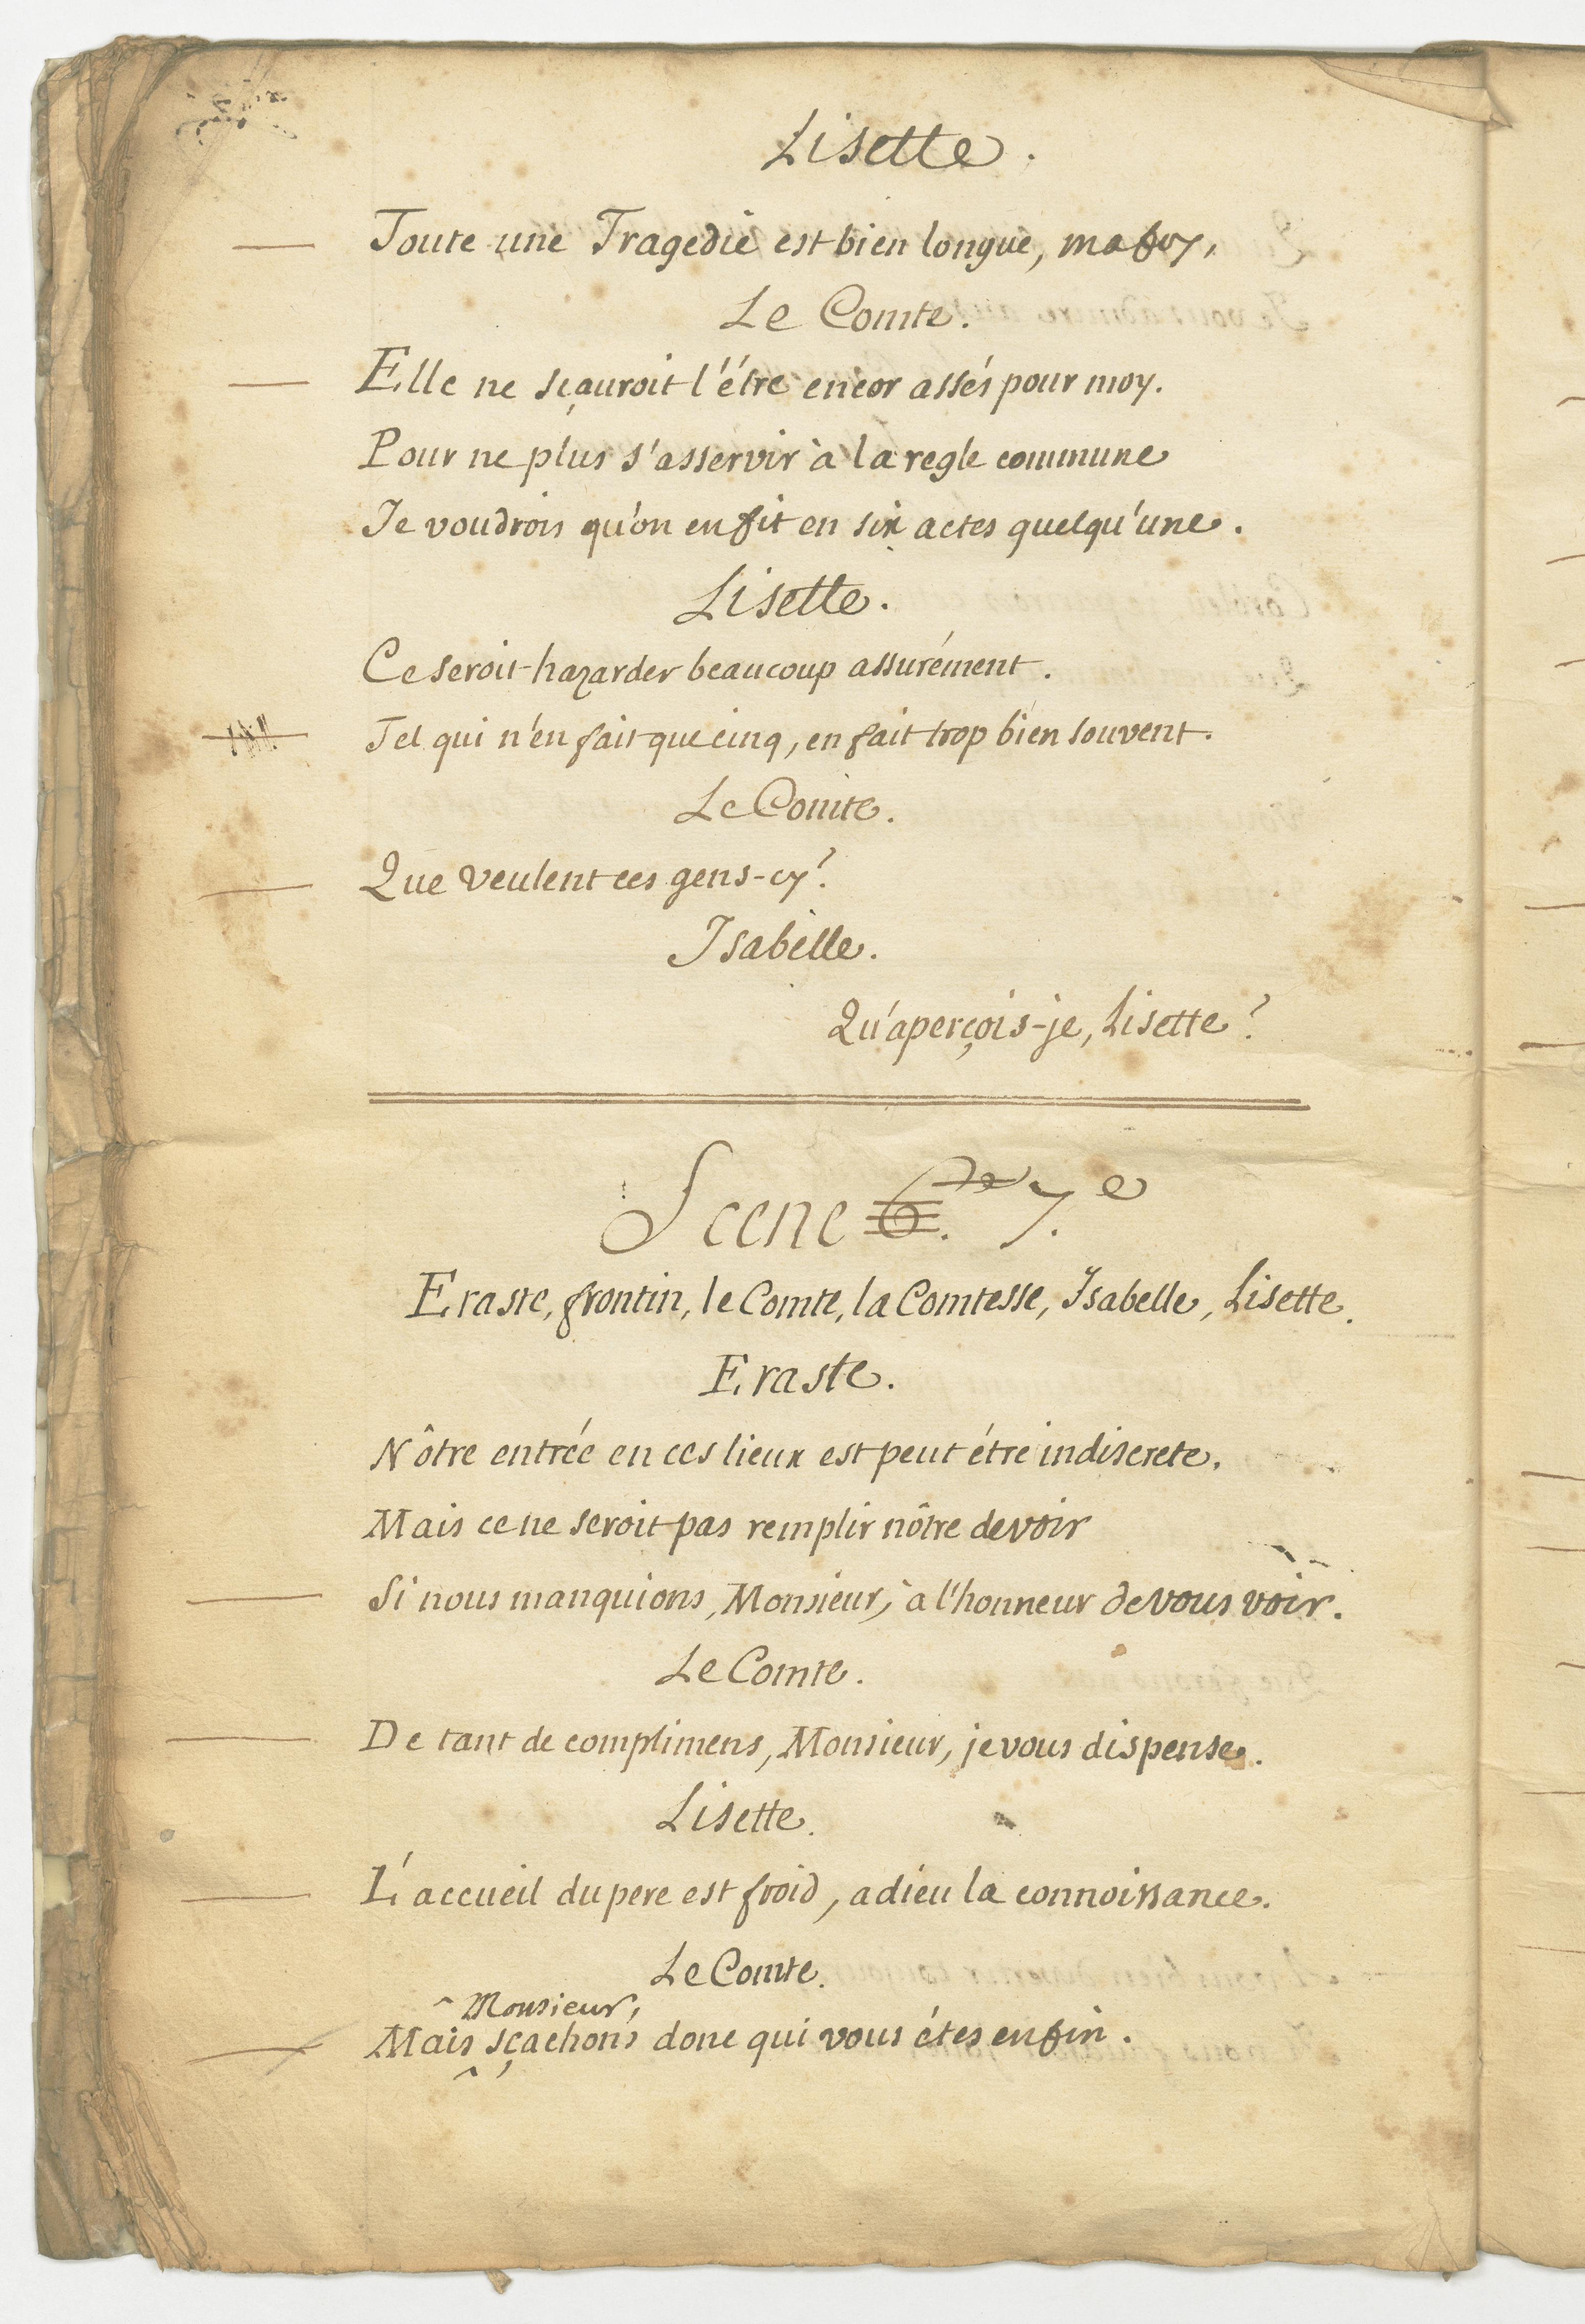 Lisette.
Toute une Tragedie est bien longue, ma foy,
Le Comte.
Elle ne sçauroit l'être encor assés pour moy.
Pour ne plus s'asservir à la regle commune
Je voudrois qu'on en fit en six actes quelqu'une.
Lisette.
Ce seroit hazarder beaucoup assurément.
Tel qui n'en fait que cinq, en fait trop bien souvent.
Le Comte.
Que veulent ces gens-cy?
Isabelle.
Qu'aperçois-je, Lisette?
Scene 6.e 7.e
Eraste, frontin, le Comte, la Comtesse, Isabelle, Lisette.
Eraste.
Nôtre entrée en ces lieux est peut étre indiscrete,
Mais ce ne seroit pas remplir nôtre devoir
Si nous manquions, Monsieur, à l'honneur de vous voir.
Le Comte.
De tant de complimens, Monsieur, je vous dispense.
Lisette.
L'accueil du pere est froid, adieu la connoissance.
Le Comte.
Monsieur,
Mais sçachons donc qui vous étes enfin.